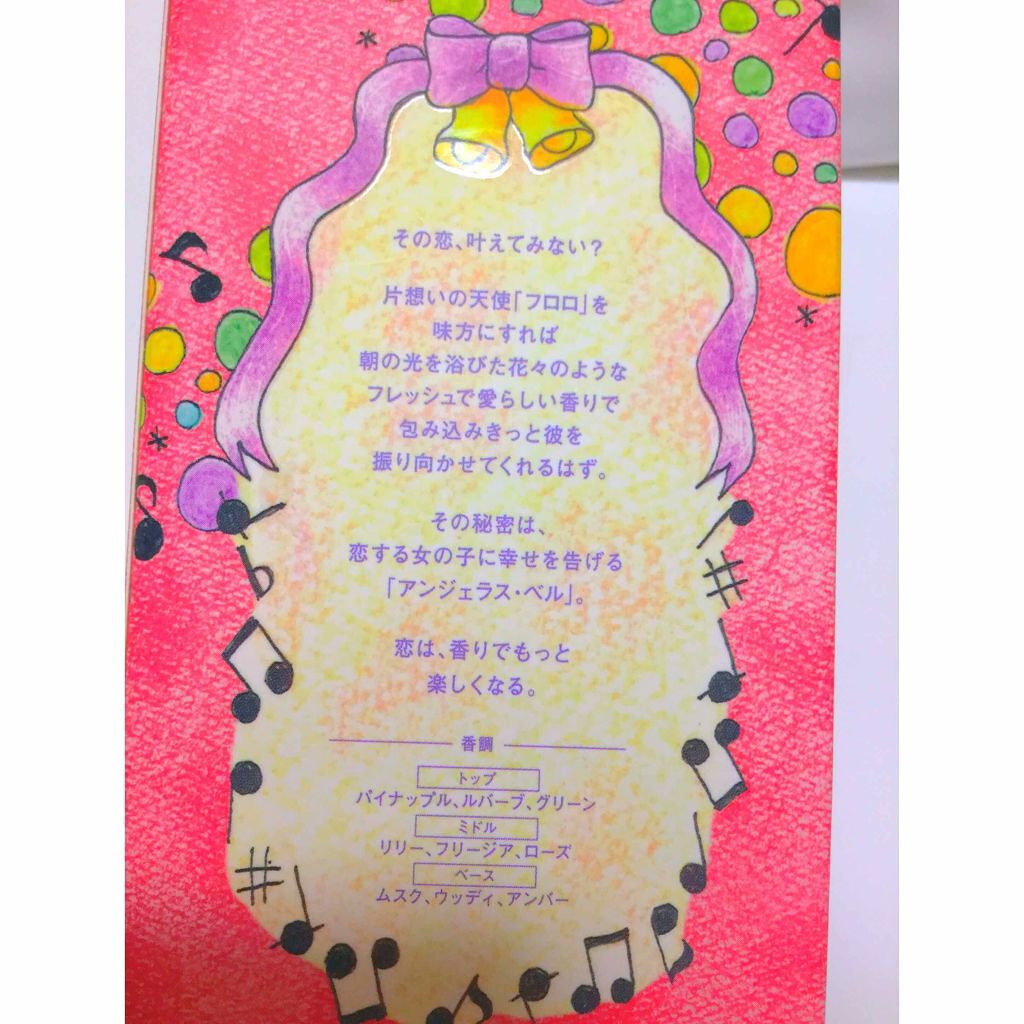 その恋、叶えてみない?
片想いの天使「フロロ」を
味方にすれば
朝の光を浴びた花々のような
フレッシュで愛らしい香りで
包み込みきっと彼を
振り向かせてくれるはず。
その秘密は、
恋する女の子に幸せを告げる
「アンジェラス・ベル」。
恋は、香りでもっと
楽しくなる。
香調
トップ
パイナップル、ルバーブ、グリーン
ミドル
リリー、フリージア、ローズ
ベース
ムスク、ウッディ、アンバー